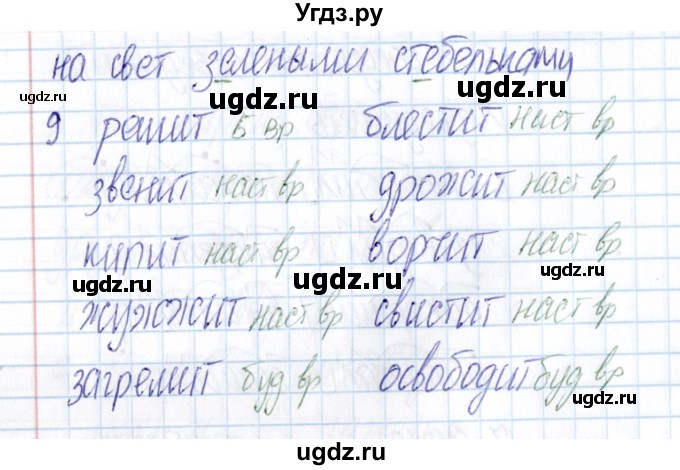 Угдз.ру
на свет зелеными стебельками
ugdz.ru ugdz.ru ugdz.ru
9 решит Б вр блестит наст вр
звенит наст вр дрожит наст вр
ugdz.ru
кипит наст вр ворчит наст вр
ugdz.ru ugdz.ru
жужжит наст вр свистит наст вр
ugdz.ru ugdz.ru
загремит буд вр освободит буд вр
ugdz.ru